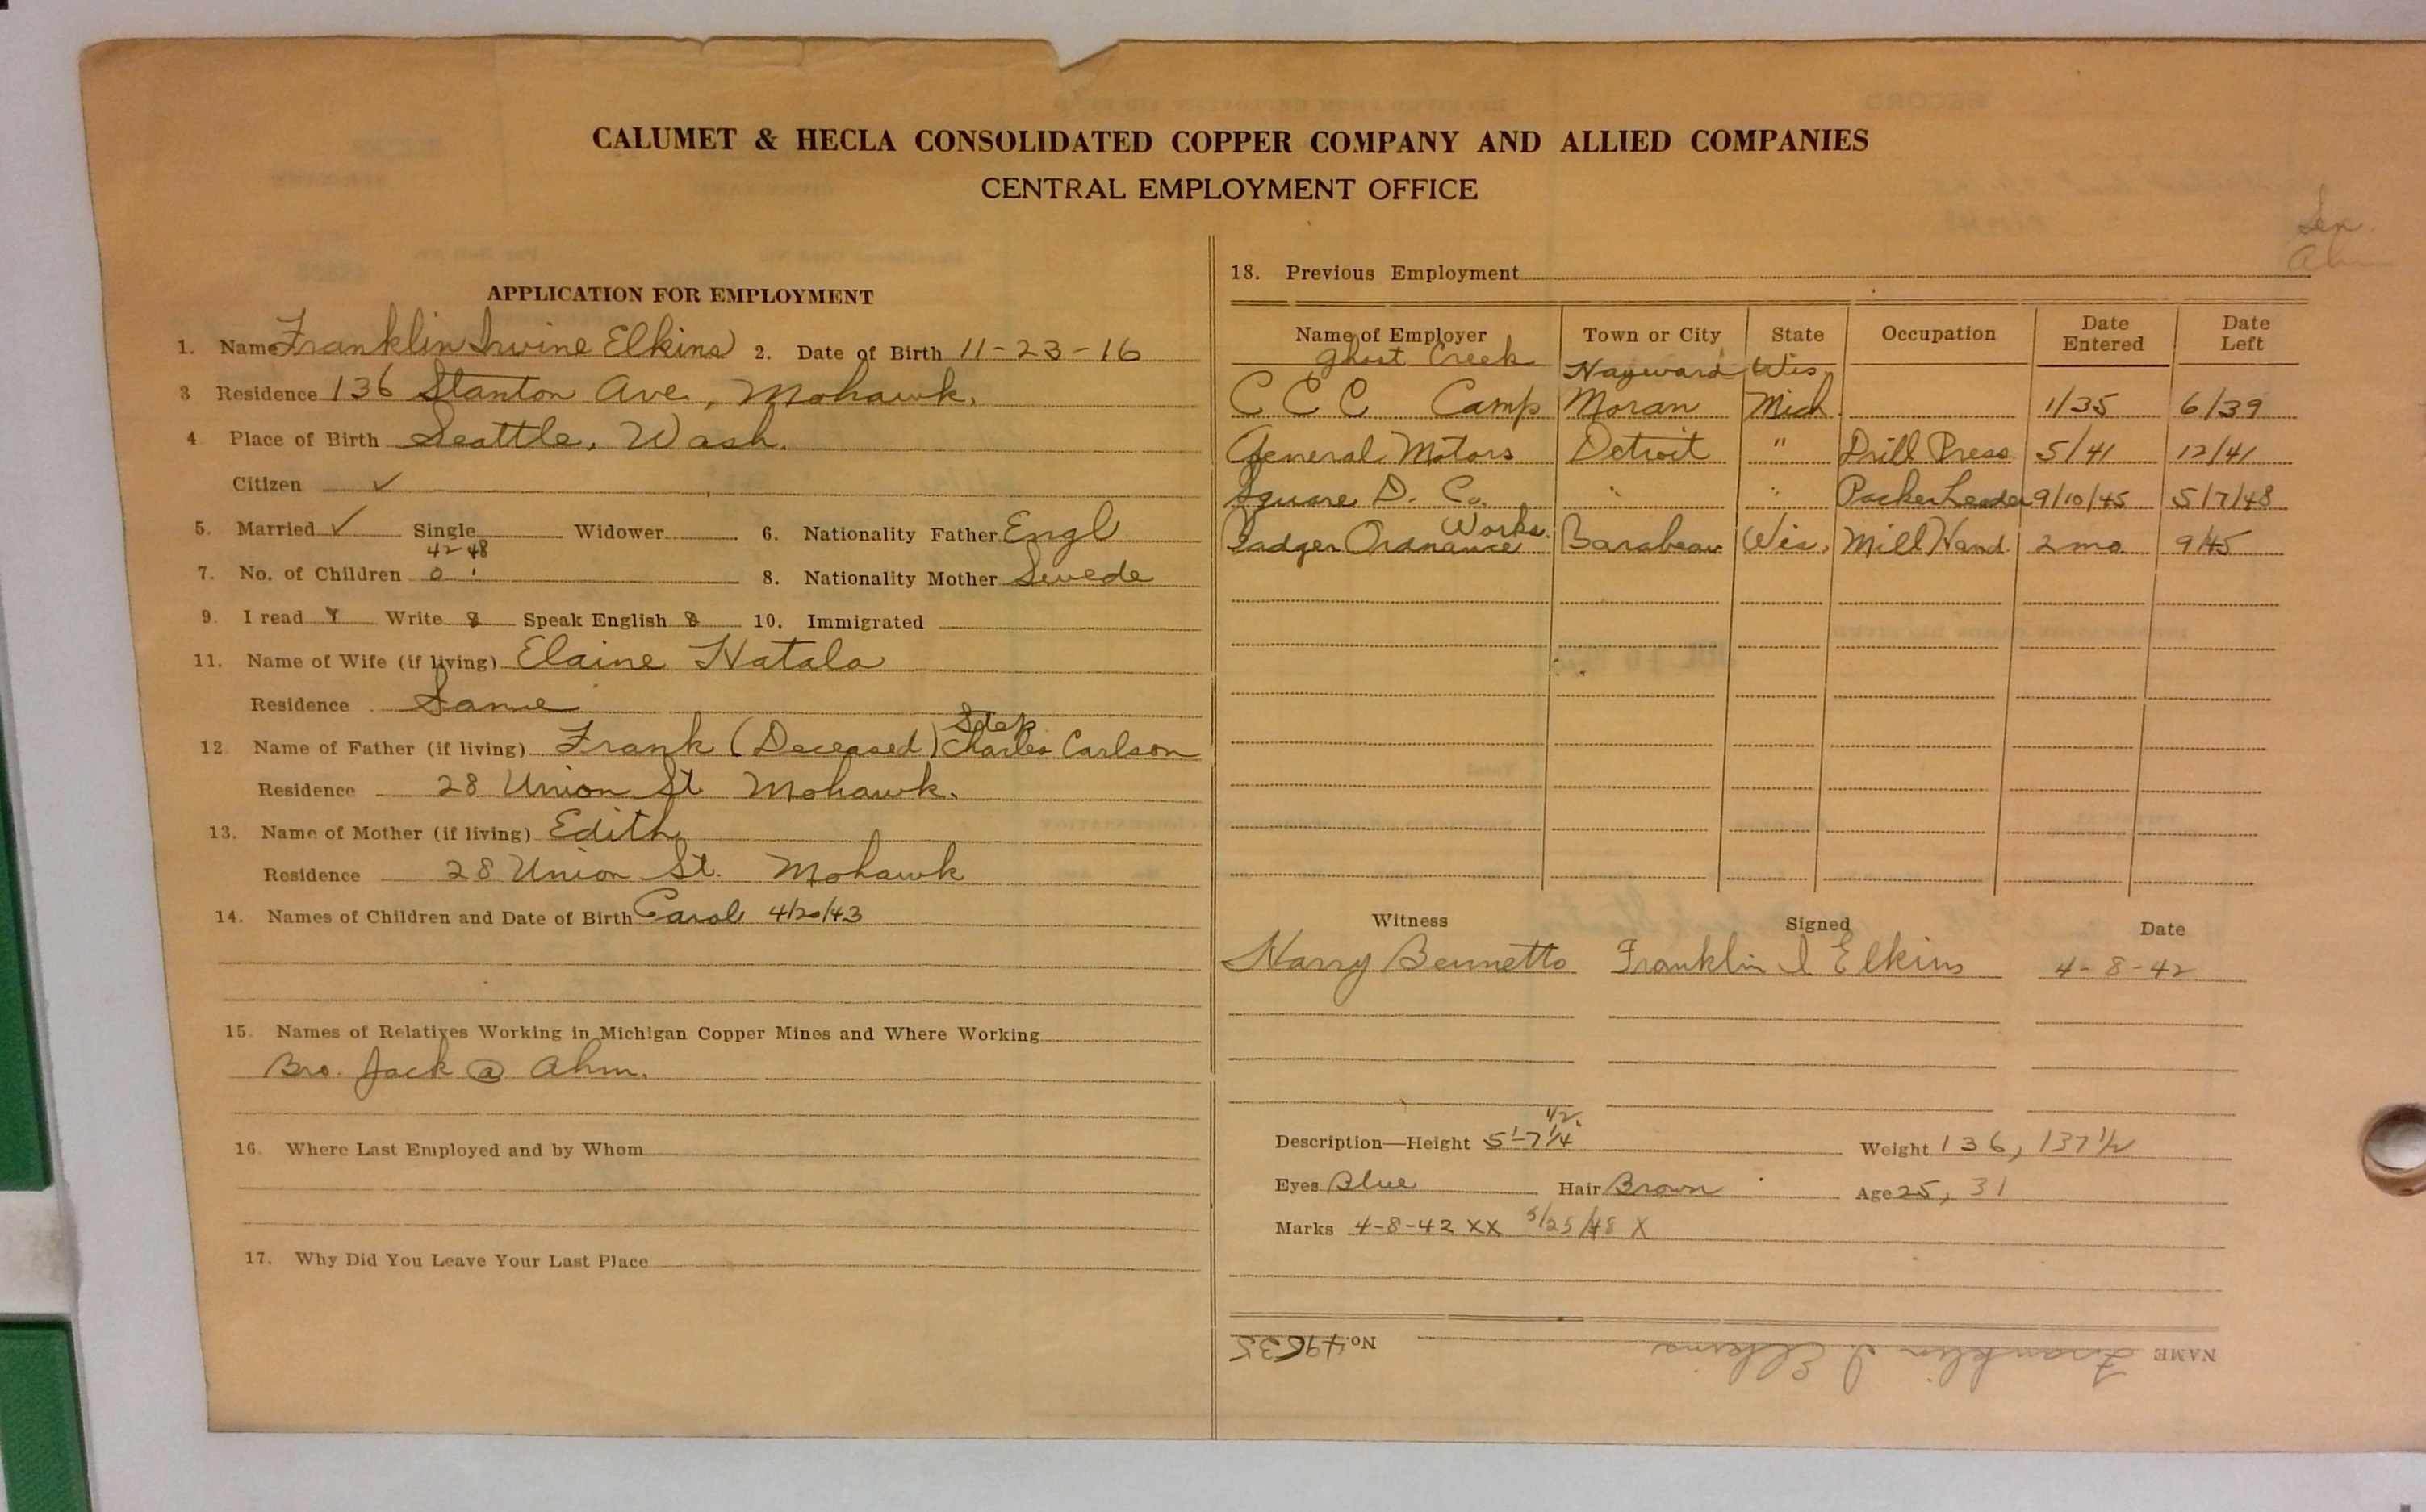 CALUMET & HECLA CONSOLIDATED COPPER COMPANY AND ALLIED COMPANIES
CENTRAL EMPLOYMENT OFFICE
APPLICATION FOR EMPLOYMENT
1. Name Franklin Irvine Elkins 2. Date of Birth 11-23-16
3 Residence 136 Stanton Ave., Mohawk.
4 Place of Birth Seattle, Wash.
Citizen ✓
5. Married ✓ Single Widower 6. Nationality Father Engl
42 48
7. No. of Children 0 1 8. Nationality Mother Swede
9. I read Y Write Speak English 10. Immigrated
11. Name of Wife (if living) Elaine Hatala
Residence Same
Step
12. Name of Father (if living) Frank (Deceased) Charles Carlson
Residence 28 Union St Mohawk.
13. Name of Mother (if living) Edith
Residence 28 Union St. Mohawk
14. Names of Children and Date of Birth Carol 4/20/43
15. Names of Relatives Working in Michigan Copper Mines and Where Working
Bro. Jack @ Ahm.
16. Where Last Employed and by Whom
17. Why Did You Leave Your Last Place
18. Previous Employment
Name of Employer Town or City State Occupation Date Entered Date Left
Ghost Creek Hayward Wis.
C C C Camp Moran Mich. 1/35 6/39
General Motors Detroit " Drill Press 5/41 12/41
Square D. Co. " " Packer Leader 9/10/45 5/7/48
Works
Badger Ordnance Barabeau Wis. Mill Hand 2 mo 9/45
Witness Signed Date
Harry Bennetto Franklin I Elkins 4-8-42
1/2.
Description—Height 5'-7 1/4 Weight 136, 137 1/2
Eyes Blue Hair Brown Age 25, 31
Marks 4-8-42 XX 5/25/48 X
NAME Franklin I Elkins No. 49635